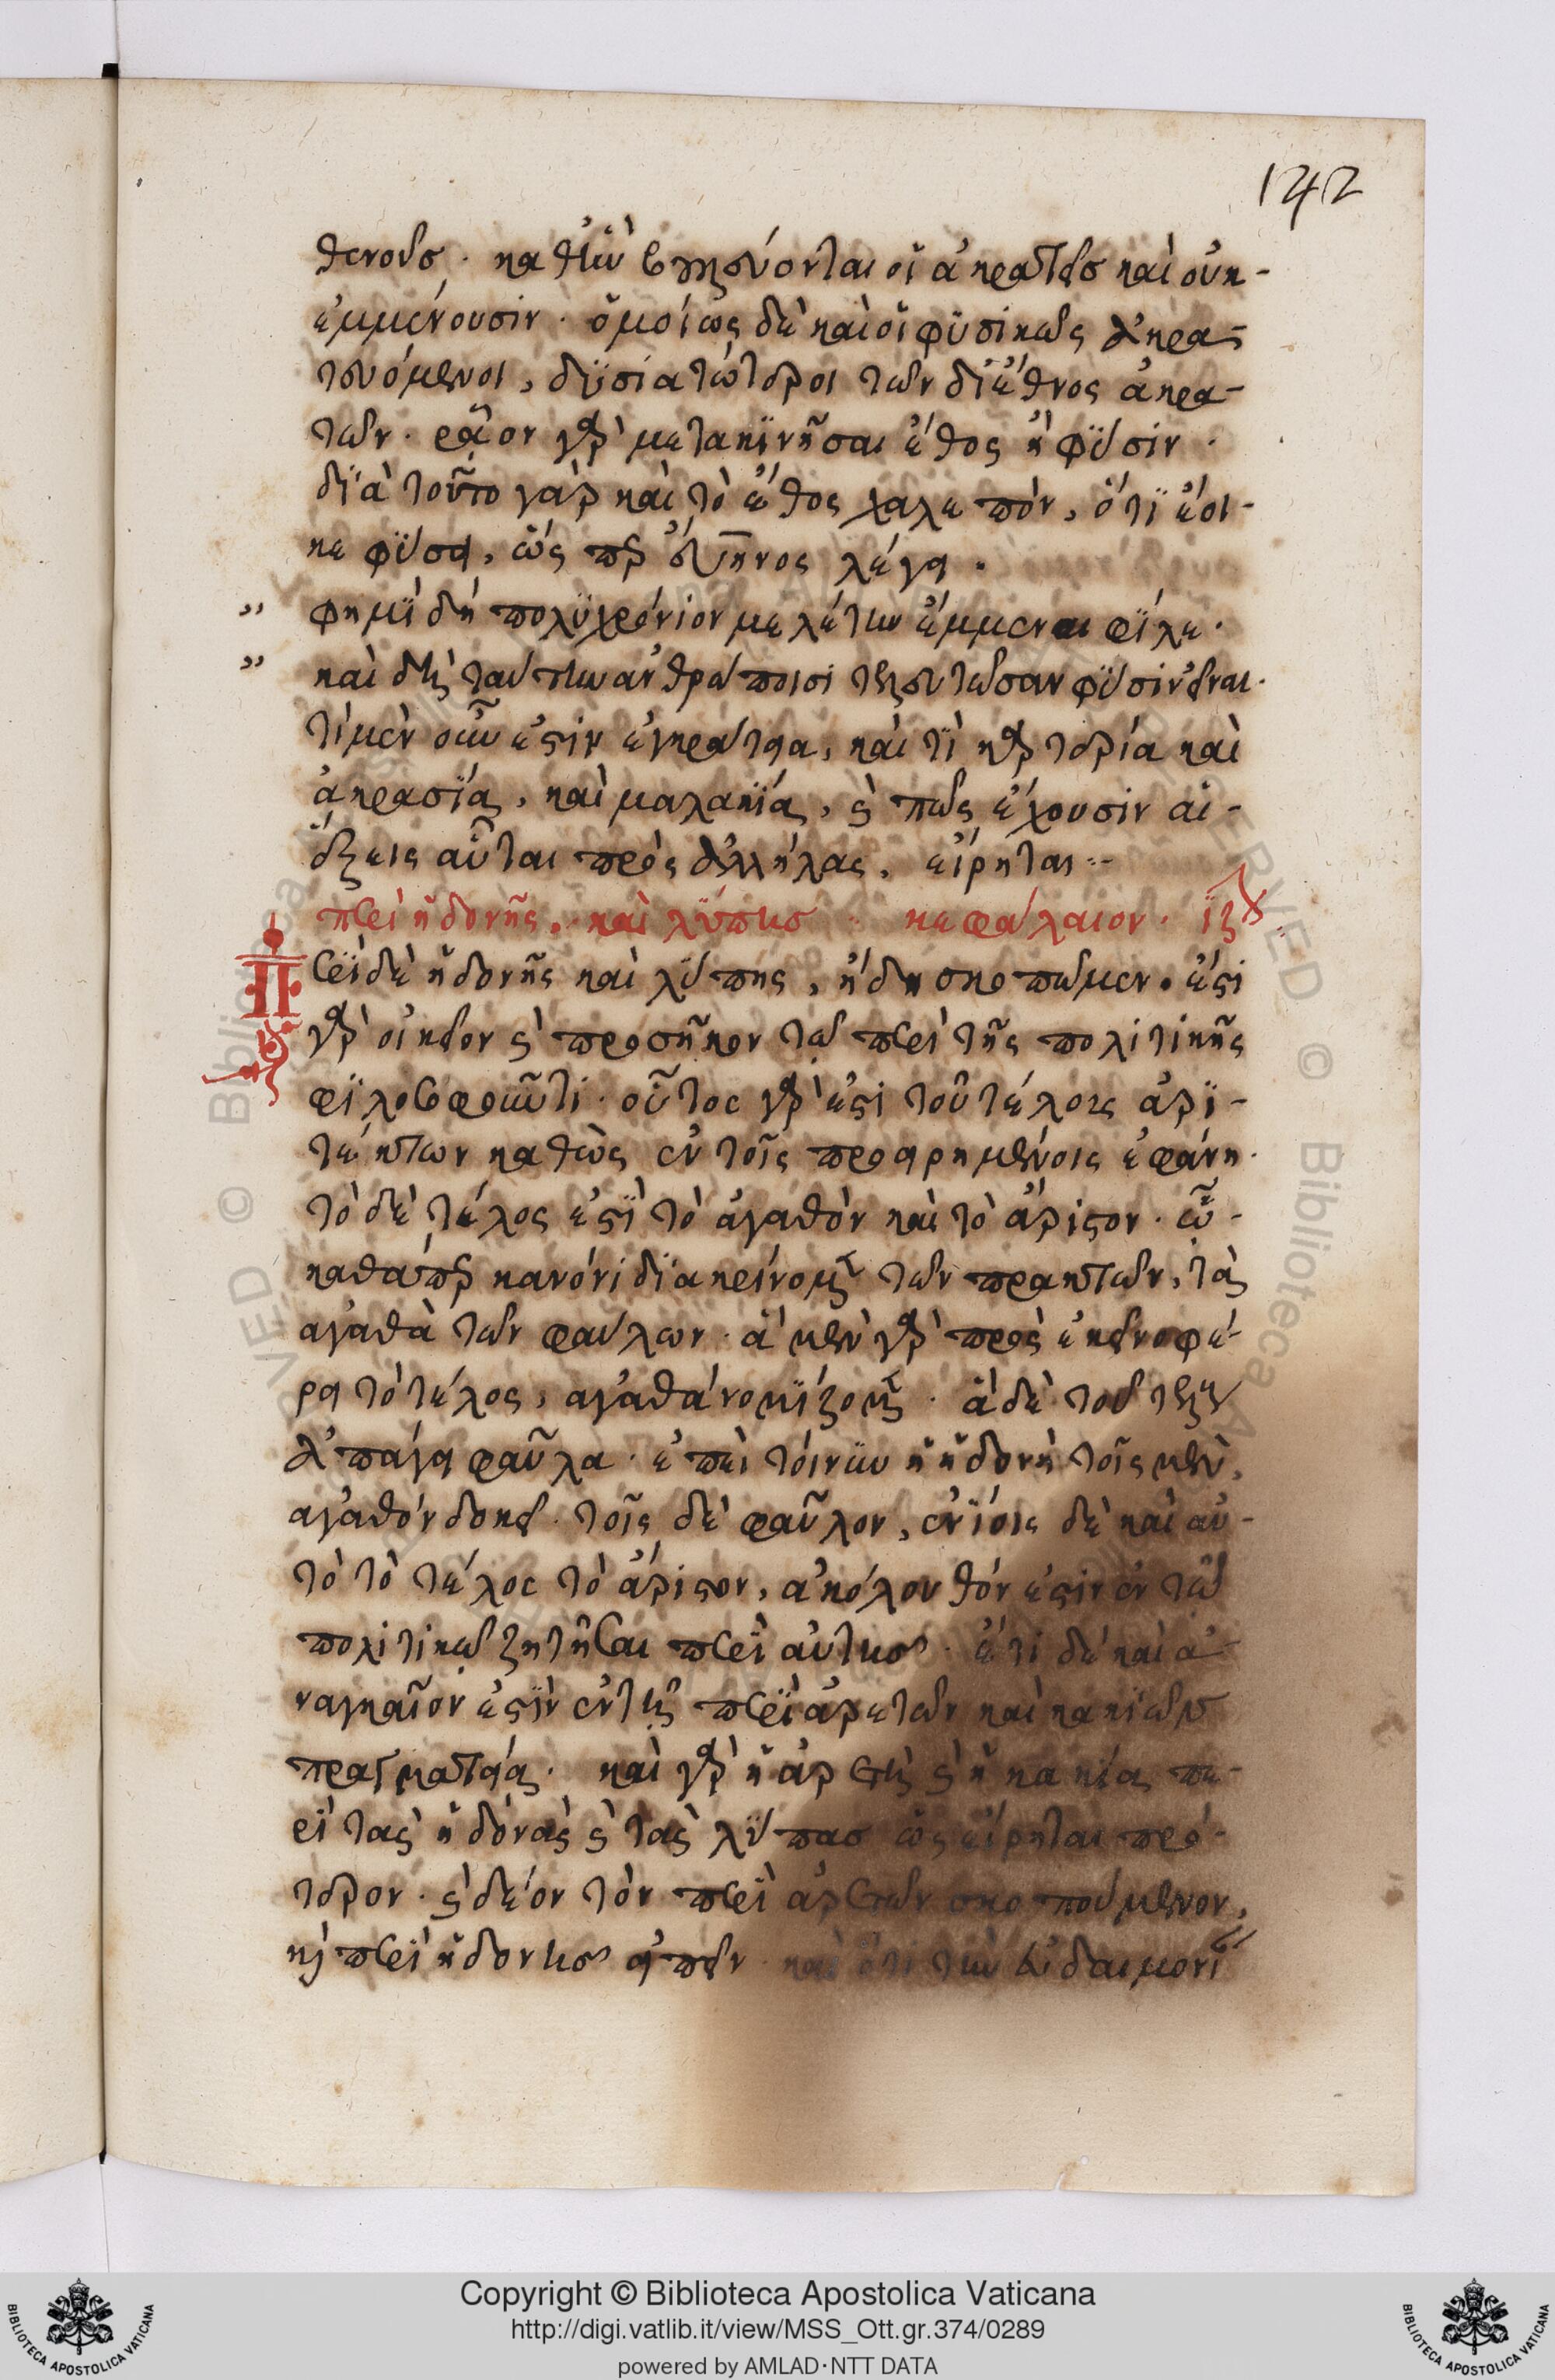 142
θενοῦσ. καθ' ἣν βουλεύονται οἱ ἀκρατεῖσ καὶ οὐκ-
ἐμμένουσιν. ὁμοίως δὲ καὶ οἱ φϋσικῶς ἀκρα-
τευόμενοι, δϋσιατώτεροι τῶν δι' ἔθνος ἀκρα-
τῶν. ρᾷον γὰρ μετακϊνῆσαι ἔθος ἢ φϋσιν.
δϊὰ τοῦτο γὰρ καὶ τὸ ἔθος χαλεπὸν, ὅτϊ ἔοι-
κε φϋσει, ὥς περ εὔηνος λέγει.
" φημϊ δὴ πολϋχρόνιον μελέτην ἔμμεναι φϊλε.
" καὶ δὴ ταύτην ἀνθρώποισι τελευτῶσαν φϋσιν εἶναι.
τί μὲν οὖν ἐστιν ἐγκράτεια, καὶ τὶ καρτερία καὶ
ἀκρασϊα, καὶ μαλακϊα, καὶ πῶς ἔχουσιν αἱ-
ἕξεις αὗται πρὸς ἀλλήλας, εἴρηται··
περὶ ἡδονῆς. καὶ λϋπησ κεφάλαιον. ϊζ
Περϊ δὲ ἡδονῆς καὶ λϋπης, ἤδη σκοπῶμεν. ἔστι
γὰρ οἰκεῖον καὶ προσῆκον τῷ περὶ τῆς πολιτικῆς
φϊλοσοφοῦντι. οὗτος γὰρ ἐστι τοῦ τέλους ἀρϊ-
τέκτων καθὼς ἐν τοῖς προειρημένοις ἐφάνη.
τὸ δὲ τέλος ἐστϊ τὸ ἀγαθὸν καὶ τὸ ἄριστον. ᾧ-
καθάπερ κανόνι διακρίνομεν τῶν πρακτῶν, τὰ
ἀγαθὰ τῶν φαύλων. ἃ μὲν γὰρ πρὸς ἐκεῖνο φέ-
ρει τὸ τέλος, ἀγαθὰ νομϊζομεν. ἃ δὲ τοῦ τέλους
ἀπάγει φαῦλα. ἐπεὶ τοίνϋν ἡ ἡδονὴ τοῖς μὲν,
ἀγαθόν δοκεῖ. τοῖς δὲ φαῦλον, ἐνϊοις δὲ καὶ αὐ-
τὸ τὸ τέλος τὸ ἄριστον, ἀκόλουθόν ἐστιν ἐν τῷ
πολιτικῷ ζητῆσαι περϊ αὐτησ. ἔτι δὲ καὶ ἀ-
ναγκαῖον ἐστϊν ἐν τῇ περϊ ἀρετῶν καὶ κακιῶν
πραγματείᾳ. καὶ γὰρ ἡ ἀρετὴ καὶ ἡ κακϊα πε-
ρϊ τας ἡδονὰς καὶ τας λϋπασ ὡς εἴρηται πρό-
τερον. καὶ δέον τὸν περϊ ἀρετῶν σκοπούμενον,
καὶ περϊ ἡδονησ εἰπεῖν. καὶ ὅτι τὴν εὐδαιμονϊ
Copyright © Biblioteca Apostolica Vaticana
http://digi.vatlib.it/view/MSS_Ott.gr.374/0289
powered by AMLAD·NTT DATA
BIBLIOTECA APOSTOLICA VATICANA
BIBLIOTECA APOSTOLICA VATICANA